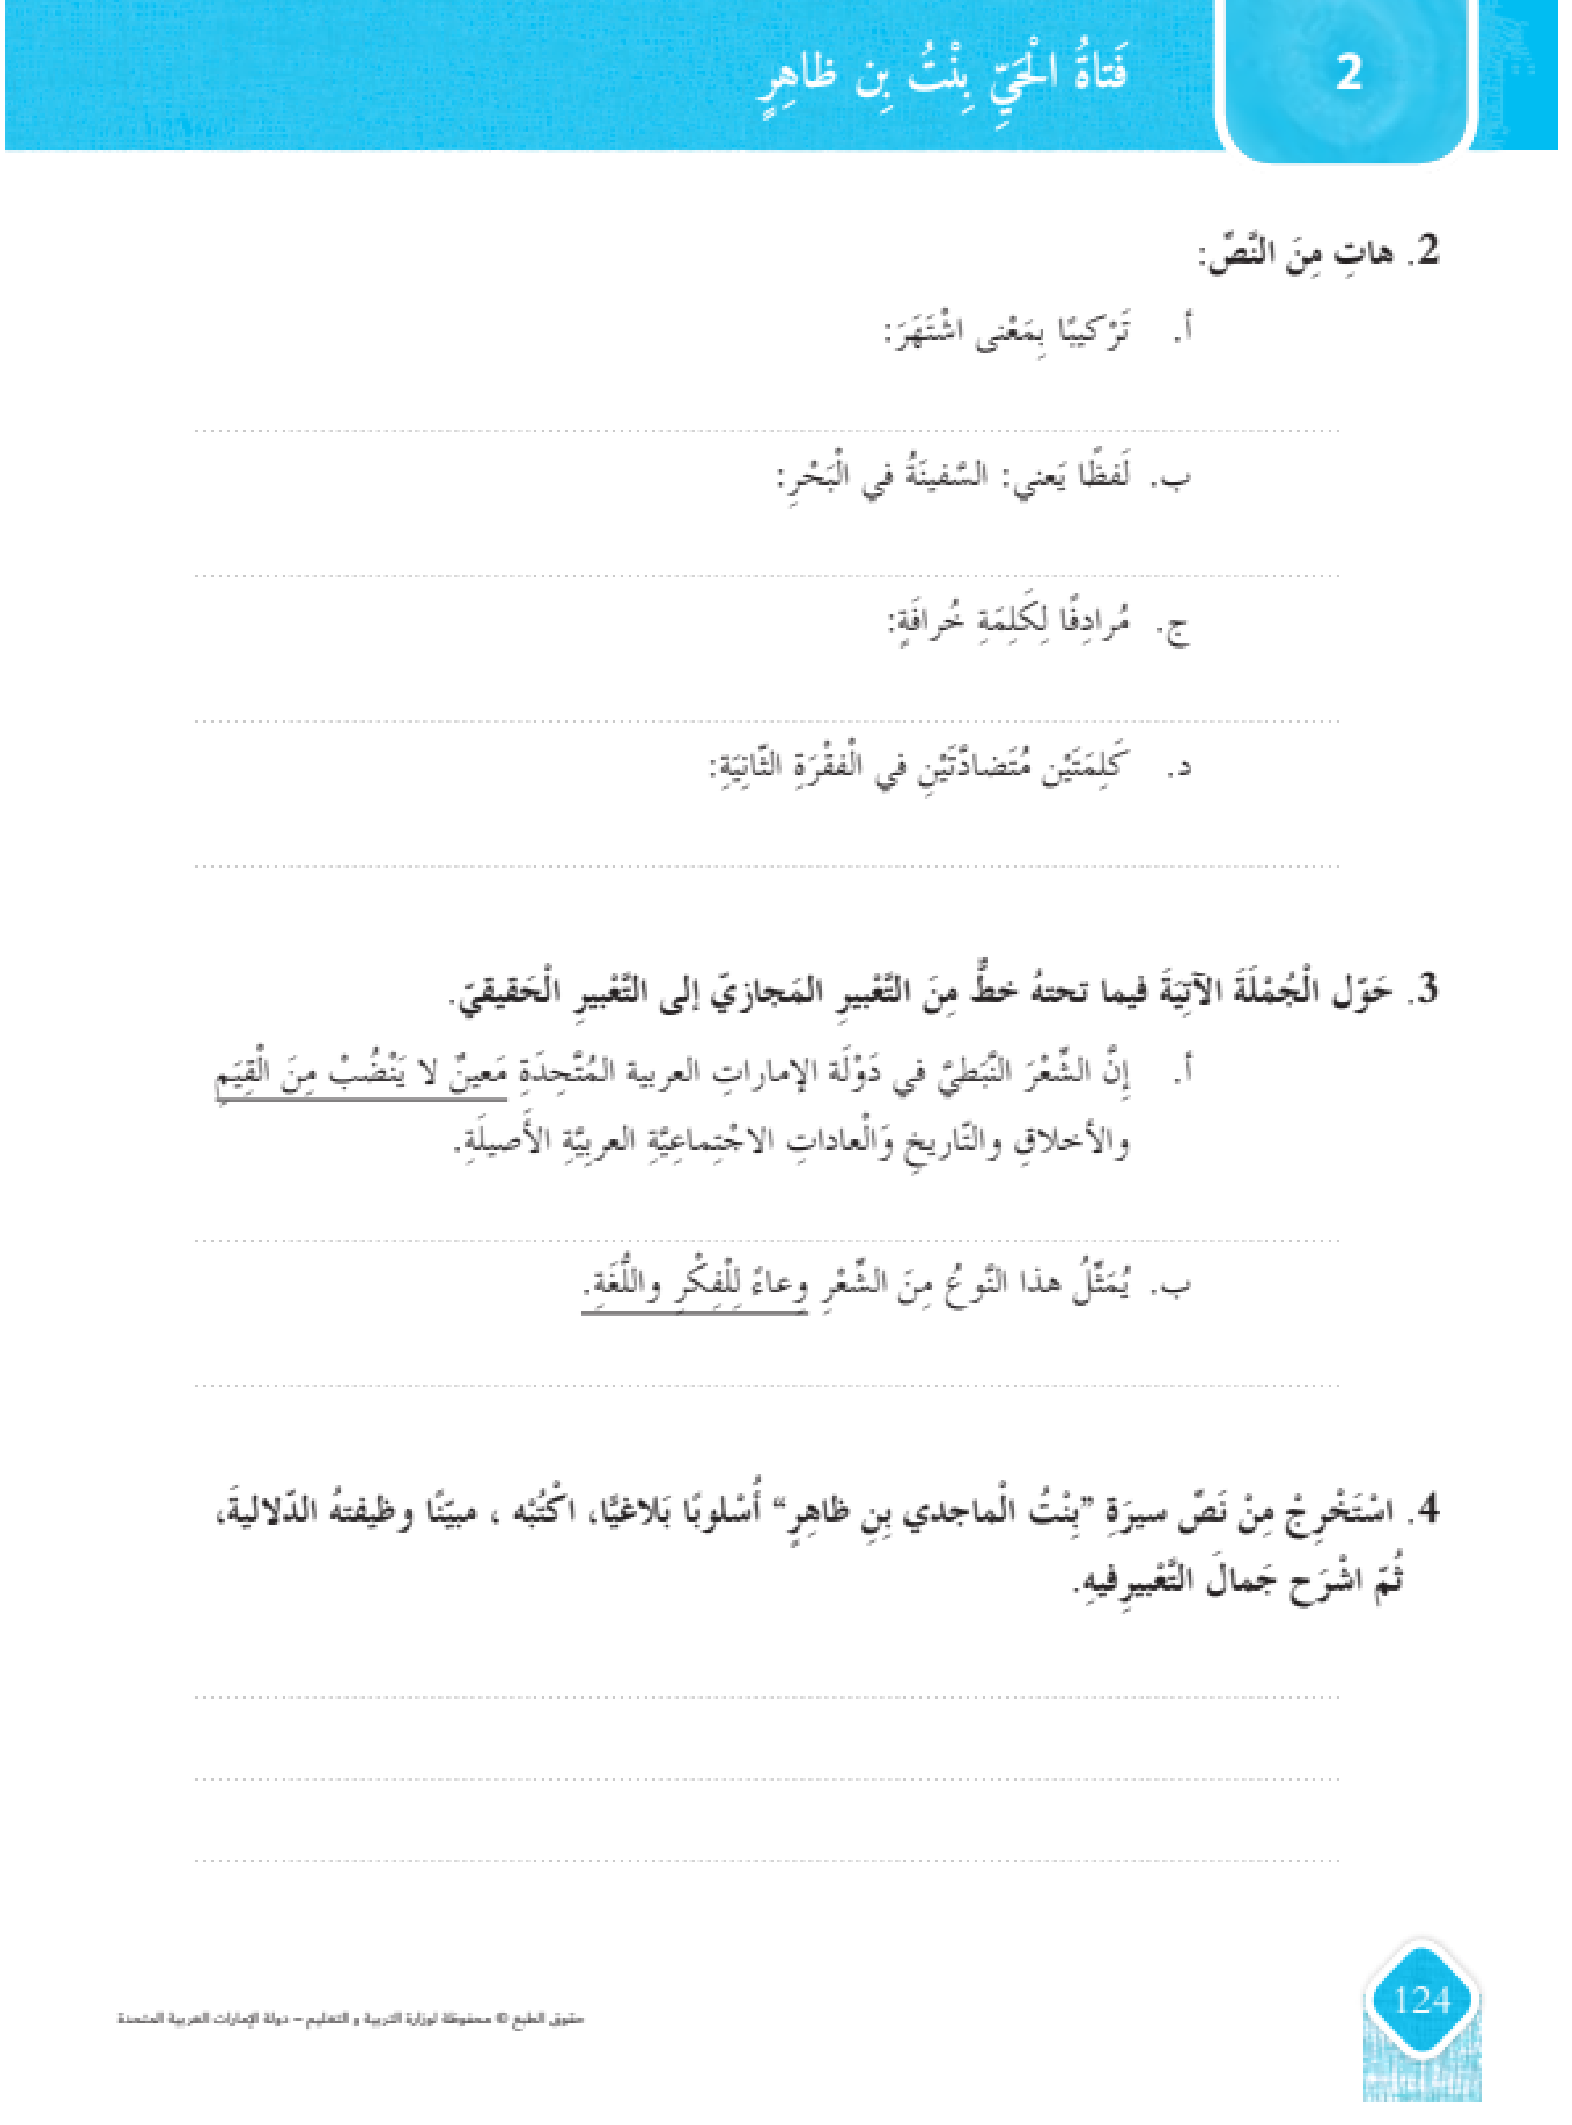 2
فَتاةُ الْحَيِّ بِنْتُ بِن ظاهِرٍ
2. هاتِ مِنَ النَّصِّ:
أ. تَرْكيبًا بِمَعْنى اشْتَهَرَ:
ب. لَفظًا يَعني: السَّفينَةُ في الْبَحْرِ:
ج. مُرادِفًا لِكَلِمَةِ خُرافَةٍ:
د. كَلِمَتَيْن مُتَضادَّتَيْنِ في الْفقْرَةِ الثّانِيَةِ:
3. حَوّل الْجُمْلَةَ الآتِيَةَ فيما تحتهُ خطٌّ مِنَ التَّعْبيرِ المَجازيّ إلى التَّعْبيرِ الْحَقيقيّ.
أ. إِنَّ الشِّعْرَ النَّبَطيَّ في دَوْلَة الإماراتِ العربية المُتَّحِدَةِ مَعينٌ لا يَنْضُبْ مِنَ الْقِيَمِ
والأخلاقِ والتّاريخِ وَالْعاداتِ الاجْتِماعِيَّةِ العربِيَّةِ الأَصيلَةِ.
ب. يُمَثِّلُ هذا النَّوعُ مِنَ الشِّعْرِ وِعاءً لِلْفِكْرِ واللُّغَةِ.
4. اسْتَخْرِجْ مِنْ نَصِّ سيرَةِ ”بِنْتُ الْماجدي بِنِ ظاهِرٍ“ أُسْلوبًا بَلاغيًّا، اكْتُبْه ، مبيّنًا وظيفتهُ الدّلاليةَ،
ثُمّ اشْرَح جَمالَ التَّعْبيرِفيهِ.
124
حقوق الطبع © محفوظة لوزارة التربية و التعليم – دولة الإمارات العربية المتحدة